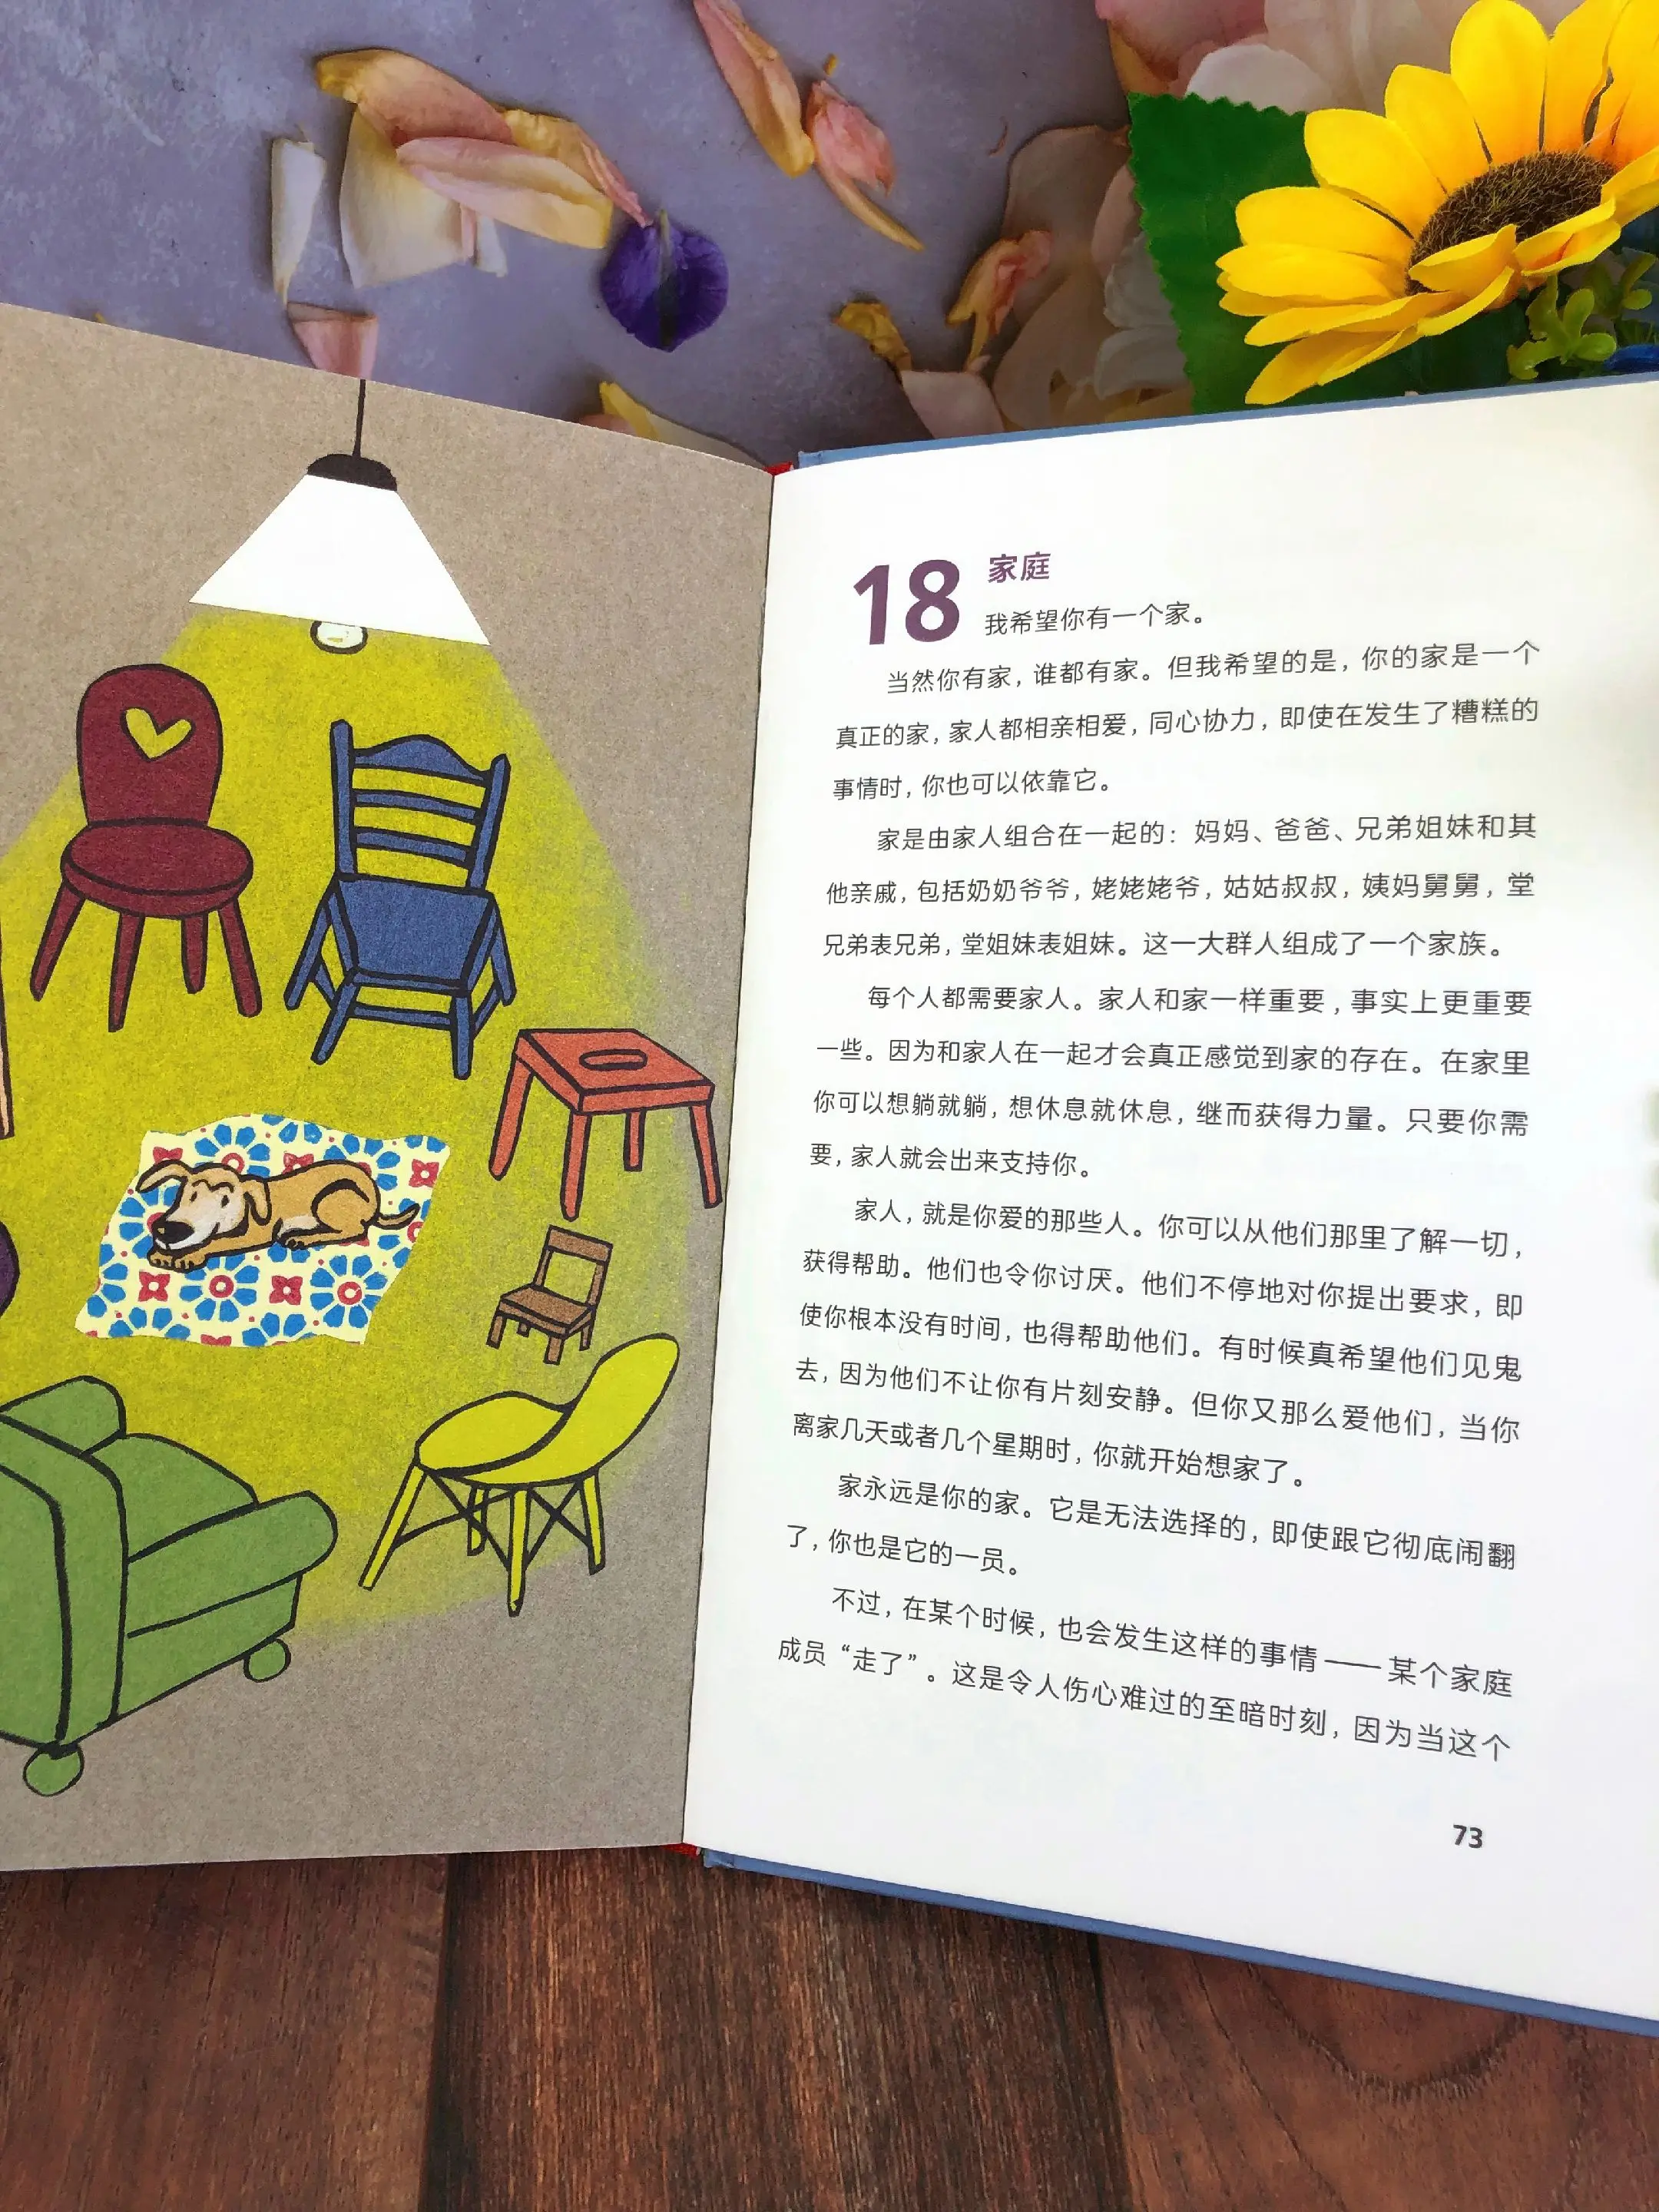 18 家庭
我希望你有一个家。
当然你有家，谁都有家。但我希望的是，你的家是一个
真正的家，家人都相亲相爱，同心协力，即使在发生了糟糕的
事情时，你也可以依靠它。
家是由家人组合在一起的：妈妈、爸爸、兄弟姐妹和其
他亲戚，包括奶奶爷爷，姥姥姥爷，姑姑叔叔，姨妈舅舅，堂
兄弟表兄弟，堂姐妹表姐妹。这一大群人组成了一个家族。
每个人都需要家人。家人和家一样重要，事实上更重要
一些。因为和家人在一起才会真正感觉到家的存在。在家里
你可以想躺就躺，想休息就休息，继而获得力量。只要你需
要，家人就会出来支持你。
家人，就是你爱的那些人。你可以从他们那里了解一切，
获得帮助。他们也令你讨厌。他们不停地对你提出要求，即
使你根本没有时间，也得帮助他们。有时候真希望他们见鬼
去，因为他们不让你有片刻安静。但你又那么爱他们，当你
离家几天或者几个星期时，你就开始想家了。
家永远是你的家。它是无法选择的，即使跟它彻底闹翻
了，你也是它的一员。
不过，在某个时候，也会发生这样的事情——某个家庭
成员“走了”。这是令人伤心难过的至暗时刻，因为当这个
73